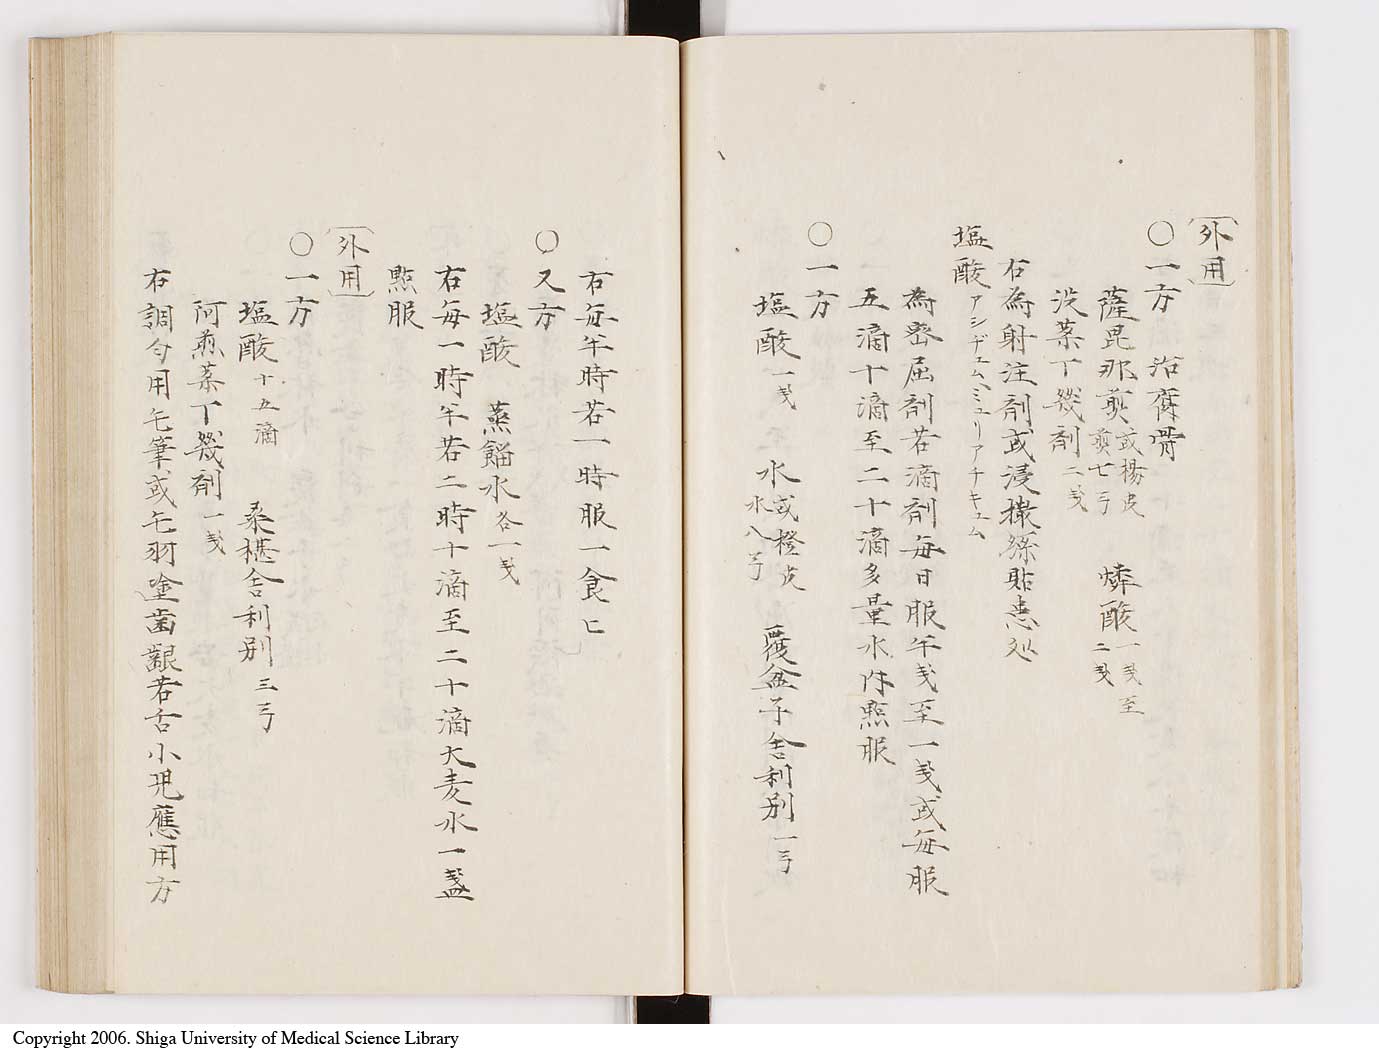 外用
○一方 治腐骨
薩毘那煎 或楊皮煎七弓 燐酸 一戔至二戔
没薬丁幾剤 二戔
右為射注剤或浸撒絲貼患処
塩酸 アシヂュムミュリアチキュム
為密屈剤若滴剤毎日服半戔至一戔或毎服
五滴十滴至二十滴多量水汁㸃服
○一方
塩酸 一戔 水 或橙皮水八弓 覆盆子舎利別 一弓
右毎半時若一時服一食匕
○又方
塩酸 蒸餾水 各一戔
右毎一時半若二時十滴至二十滴大麦水一盞
㸃服
外用
○一方
塩酸 十五滴 桑椹舎利別 三弓
阿煎薬丁幾剤 一戔
右調匀用毛筆或毛羽塗歯齦若舌小児應用方
Copyright 2006. Shiga University of Medical Science Library